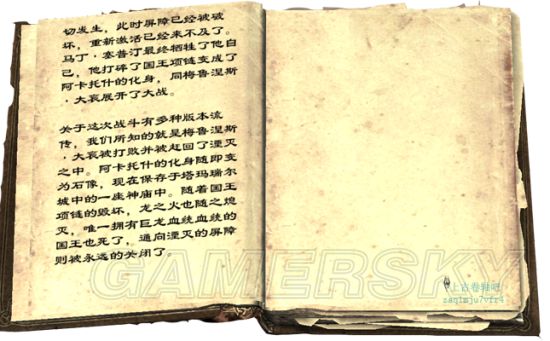 切发生，此时屏障已经被破
坏，重新激活已经来不及了。
马丁·塞普汀最终牺牲了他自
己，他打碎了国王项链变成了
阿卡托什的化身，同梅鲁涅斯
·大衮展开了大战。
关于这次战斗有多种版本流
传，我们所知的就是梅鲁涅斯
·大衮被打败并被赶回了湮灭
之中。阿卡托什的化身随即变
为石像，现在保存于塔玛瑞尔
城中的一座神庙中。随着国王
项链的毁坏，龙之火也随之熄
灭，唯一拥有巨龙血统血统的
国王也死了，通向湮灭的屏障
则被永远的关闭了。
GAMERSKY
上古卷轴吧
zaq1mju7vfr4